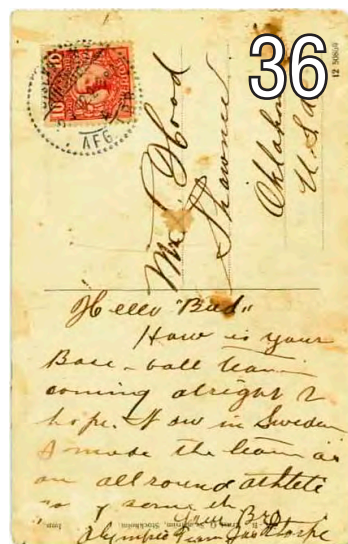 36
12 50809
10
AFG.
Mr. Hood
Shawnee
Oklahom
U.S.a
Hello "Bud"
How is your
Base-ball team
coming alright I
hope. I am in Sweden
I made the team as
an all round athlete
Your Bro
Olympic Team Jas Thorpe
Stockholm
Imp.